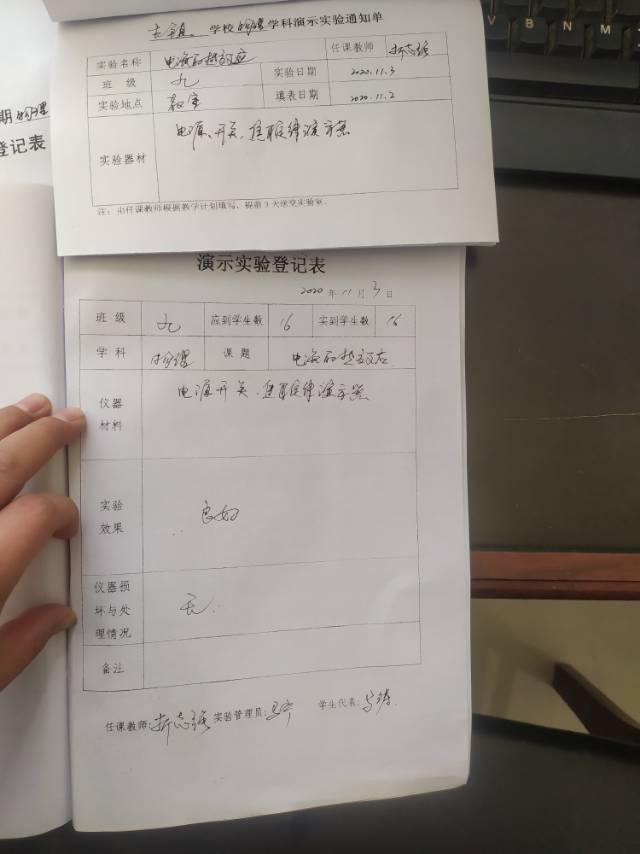 学校物理学科演示实验通知单
实验名称 电流的热效应 任课教师 折志强
班级 九 实验日期 2020.11.3
实验地点 教室 填表日期 2020.11.2
实验器材 电源、开关、焦耳定律演示器
注：由任课教师根据教学计划填写，提前3天送交实验室.
期 物理
登记表
演示实验登记表
2020年11月3日
班级 九 应到学生数 16 实到学生数 16
学科 物理 课题 电流的热效应
仪器材料 电源开关、焦耳定律演示器
实验效果 良好
仪器损坏与处理情况 无.
备注
任课教师：折志强 实验管理员： 学生代表：
V B N M